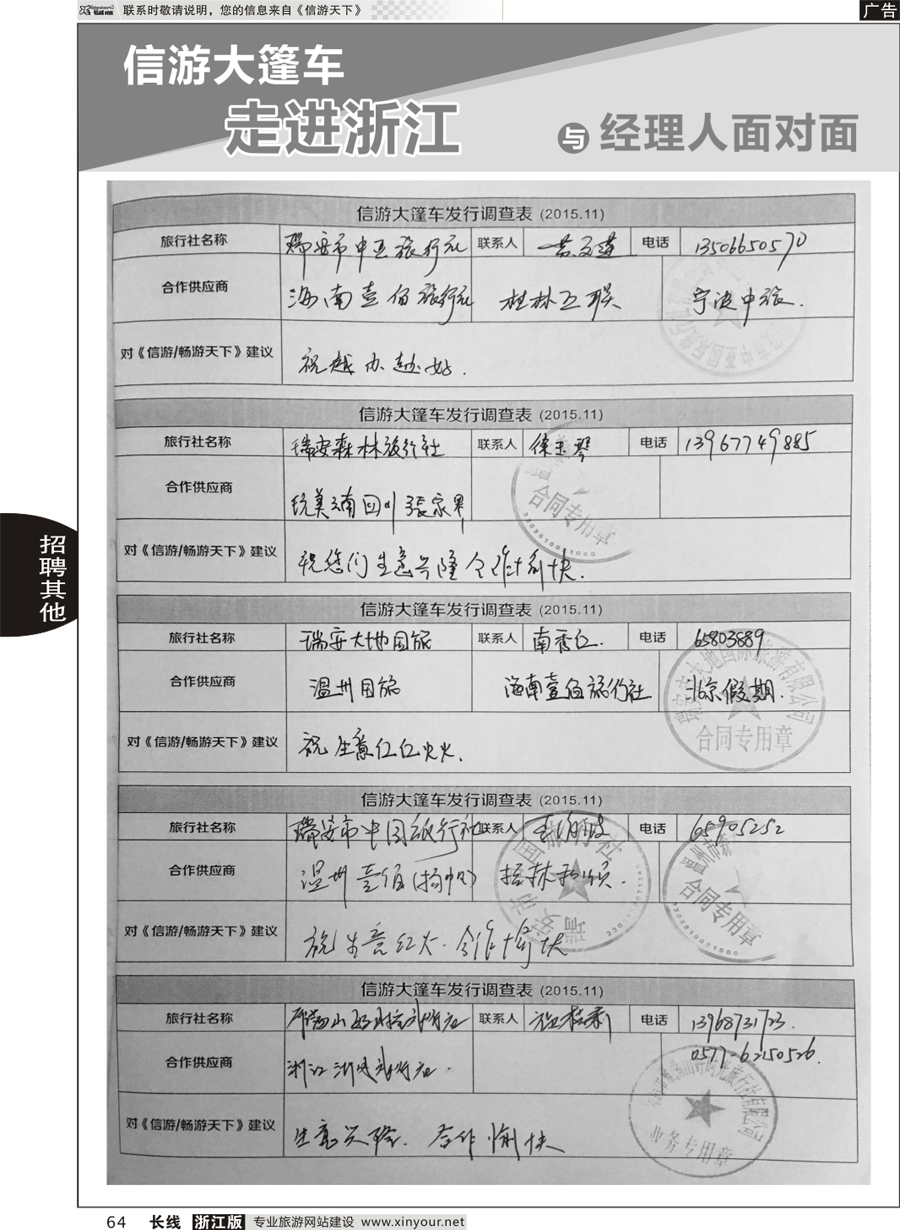 联系时敬请说明，您的信息来自《信游天下》
广告
信游大篷车
走进浙江
与 经理人面对面
招聘其他
信游大篷车发行调查表 (2015.11)
旅行社名称 瑞安市中亚旅行社 联系人 电话 13506650570
合作供应商 海南壹佰旅行社 桂林互联 宁波中旅.
对《信游/畅游天下》建议 祝越办越好.
信游大篷车发行调查表 (2015.11)
旅行社名称 瑞安森林旅行社 联系人 徐玉琴 电话 13967749885
合作供应商 统美云南四川张家界
对《信游/畅游天下》建议 祝您们生意兴隆 合作愉快.
合同专用章
信游大篷车发行调查表 (2015.11)
旅行社名称 瑞安大地国旅 联系人 南秀红. 电话 65803889
合作供应商 温州国旅 海南壹佰旅行社 北京假期.
对《信游/畅游天下》建议 祝生意红红火火.
合同专用章
信游大篷车发行调查表 (2015.11)
旅行社名称 瑞安市中国旅行社 联系人 电话 65905252
合作供应商 温州壹佰(扬帆) 桂林
对《信游/畅游天下》建议 祝生意红火.合作愉快
合同专用章
信游大篷车发行调查表 (2015.11)
旅行社名称 联系人 电话 13968731723.
0577-62150526.
合作供应商 浙江
对《信游/畅游天下》建议 生意兴隆. 合作愉快
业务专用章
64 长线 浙江版 专业旅游网站建设 www.xinyour.net